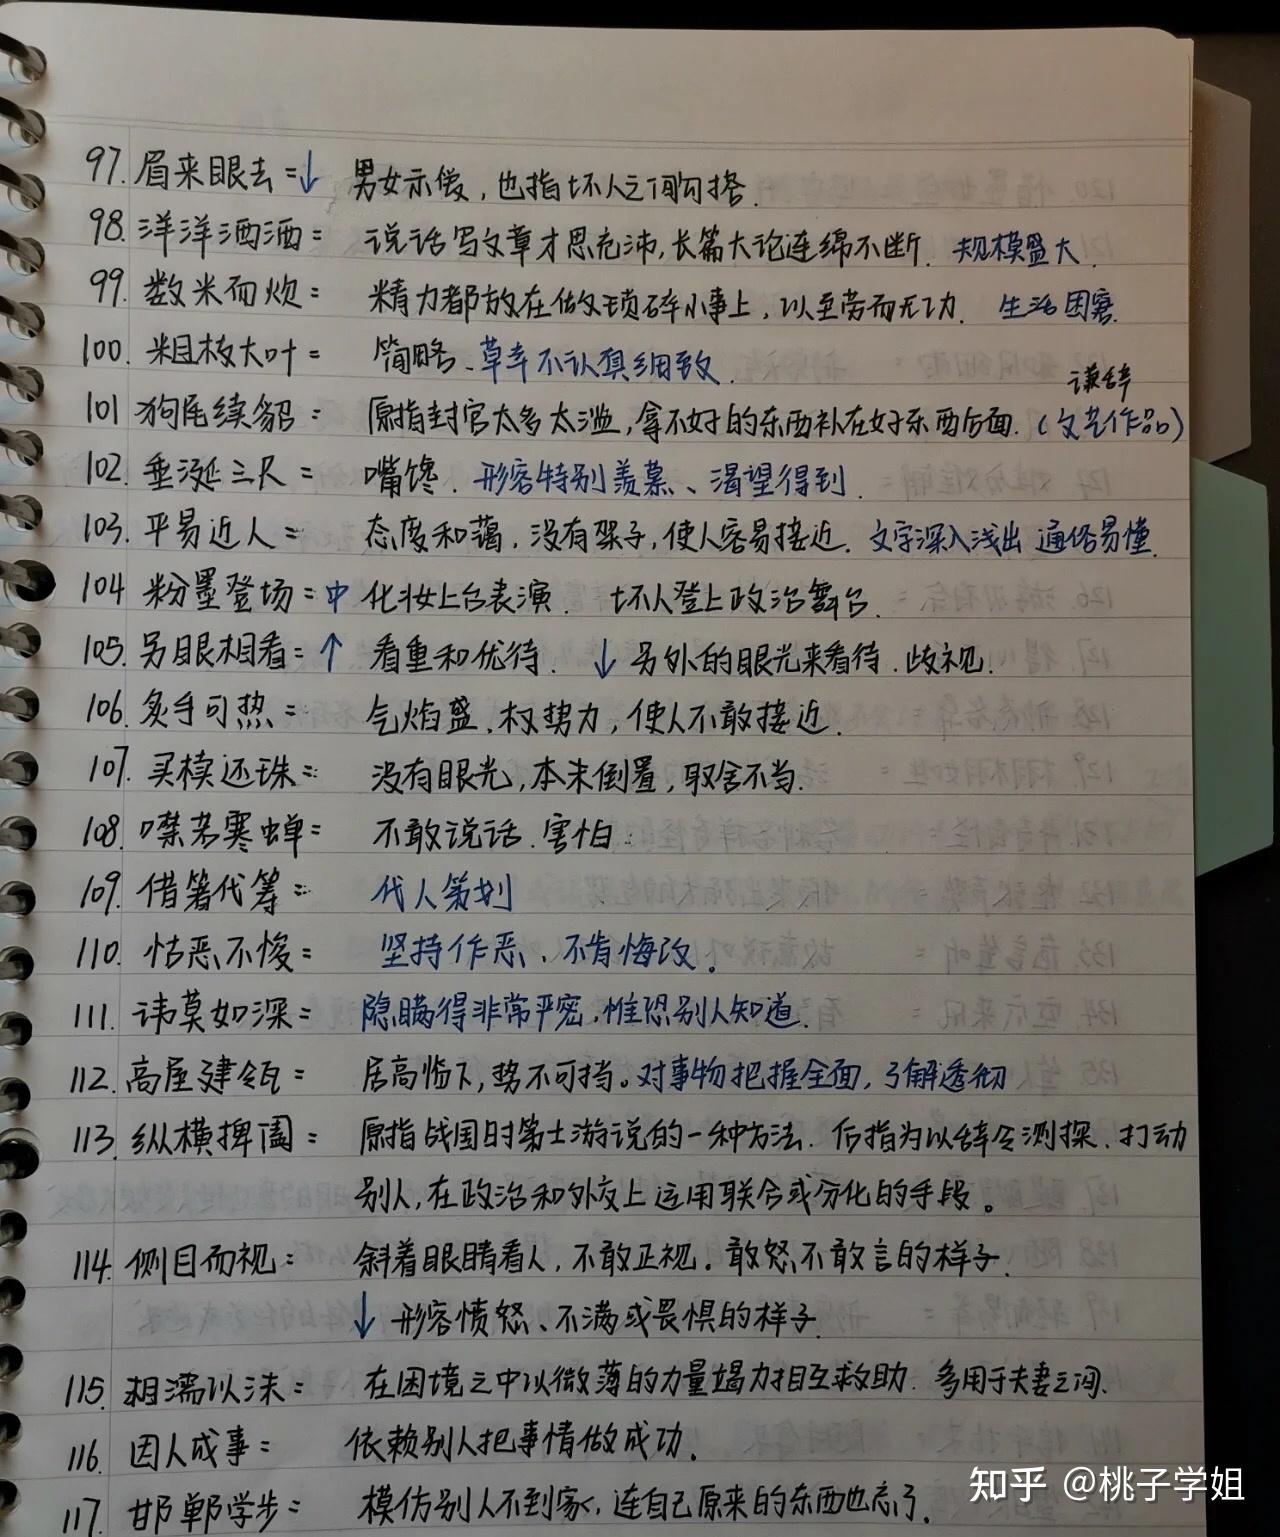 97. 眉来眼去 = ↓ 男女示爱，也指坏人之间勾搭.
98. 洋洋洒洒 = 说话写文章才思充沛,长篇大论连绵不断. 规模盛大.
99. 数米而炊 = 精力都放在做琐碎小事上，以至劳而无功. 生活困窘.
100. 粗枝大叶 = 简略、草率不认真细致.
谦辞
101 狗尾续貂 = 原指封官太多太滥,拿不好的东西补在好东西后面. (文艺作品)
102. 垂涎三尺 = 嘴馋. 形容特别羡慕、渴望得到.
103. 平易近人 = 态度和蔼，没有架子,使人容易接近. 文字深入浅出 通俗易懂.
104 粉墨登场 = 中 化妆上台表演. 坏人登上政治舞台.
105. 另眼相看 = ↑ 看重和优待. ↓ 另外的眼光来看待. 歧视.
106. 炙手可热 = 气焰盛、权势力，使人不敢接近.
107. 买椟还珠 = 没有眼光,本末倒置,取舍不当.
108. 噤若寒蝉 = 不敢说话. 害怕.
109. 借箸代筹 = 代人策划
110. 怙恶不悛 = 坚持作恶、不肯悔改.
111. 讳莫如深 = 隐瞒得非常严密,惟恐别人知道.
112. 高屋建瓴 = 居高临下,势不可挡。对事物把握全面，了解透彻
113. 纵横捭阖 = 原指战国时策士游说的一种方法. 后指为以辞令测探、打动
别人,在政治和外交上运用联合或分化的手段。
114. 侧目而视 = 斜着眼睛看人，不敢正视. 敢怒不敢言的样子.
↓ 形容愤怒、不满或畏惧的样子.
115. 相濡以沫 = 在困境之中以微薄的力量竭力相互救助. 多用于夫妻之间.
116. 因人成事 = 依赖别人把事情做成功.
117. 邯郸学步 = 模仿别人不到家，连自己原来的东西也忘了.
知乎 @桃子学姐